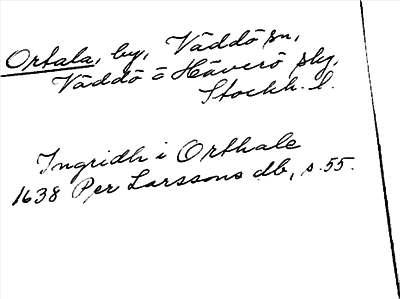 Ortala, by, Väddö sn,
Väddö ö Häverö skg,
Stockh. l.
Ingridh i Orthale
1638 Per Larssons db, s. 55.